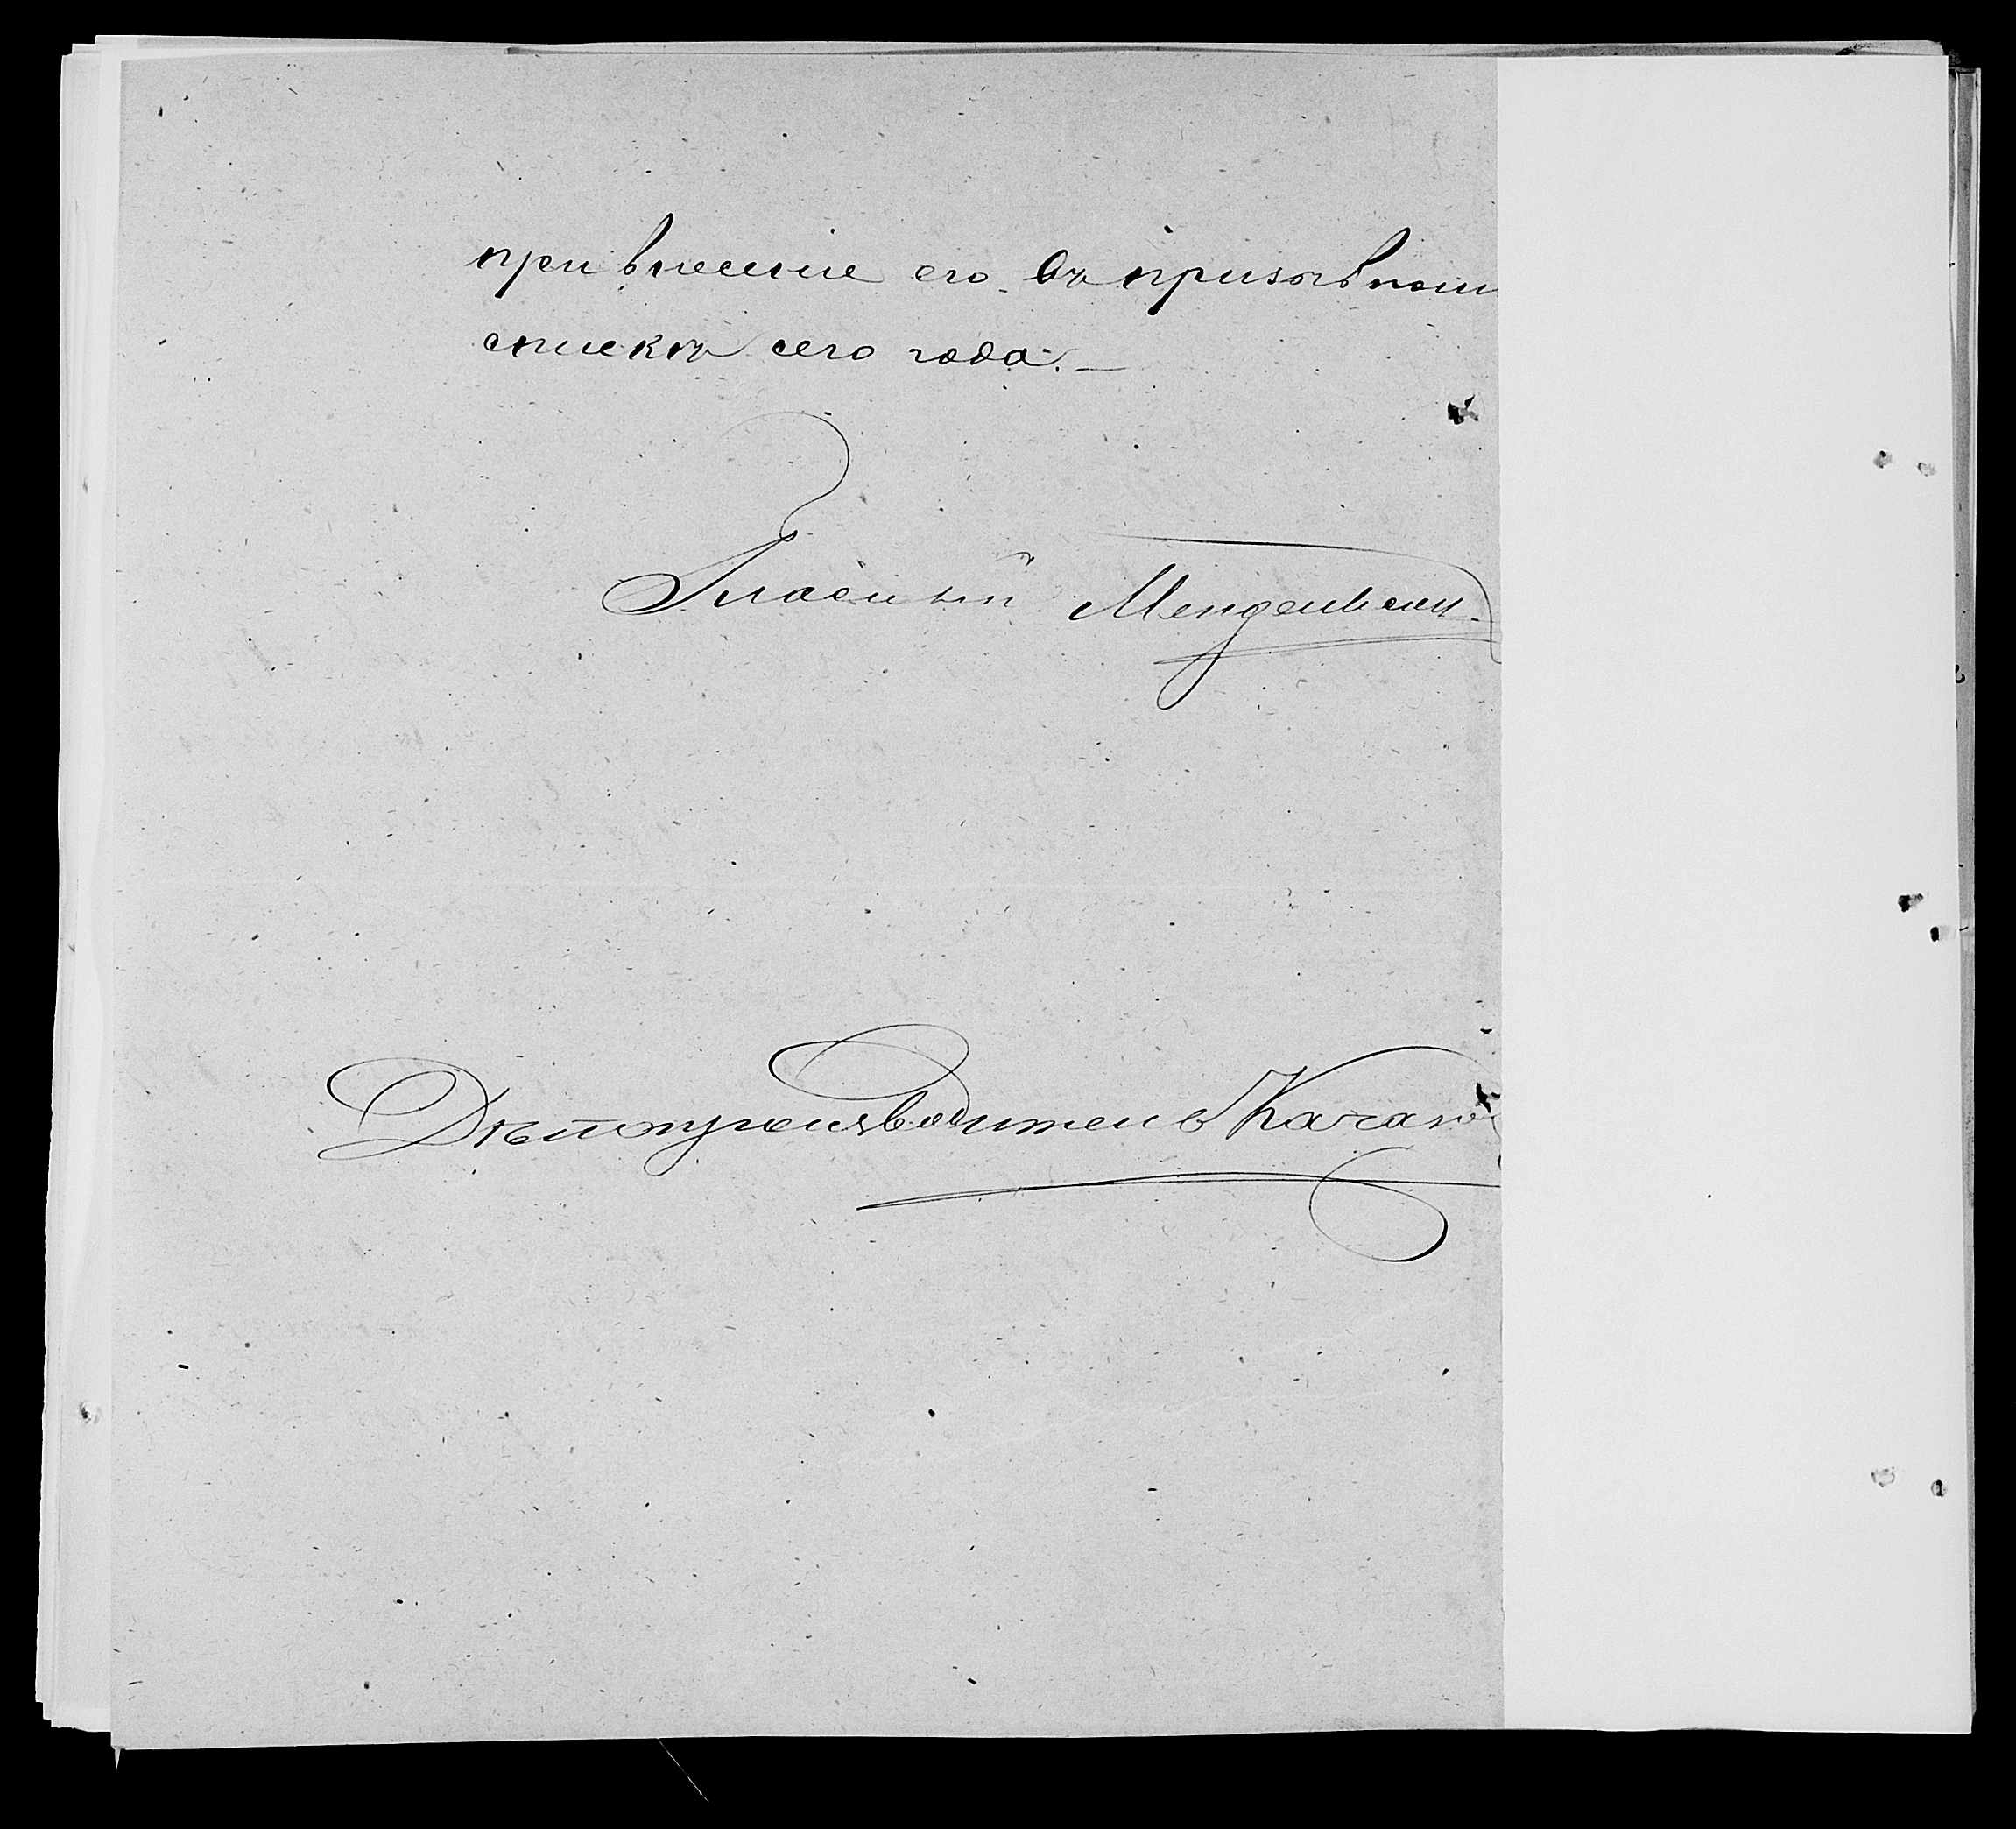 при внесенiе его въ призывном
списки сего года.—
Гласный Мендельсон
Дѣлопроизводитель Качано